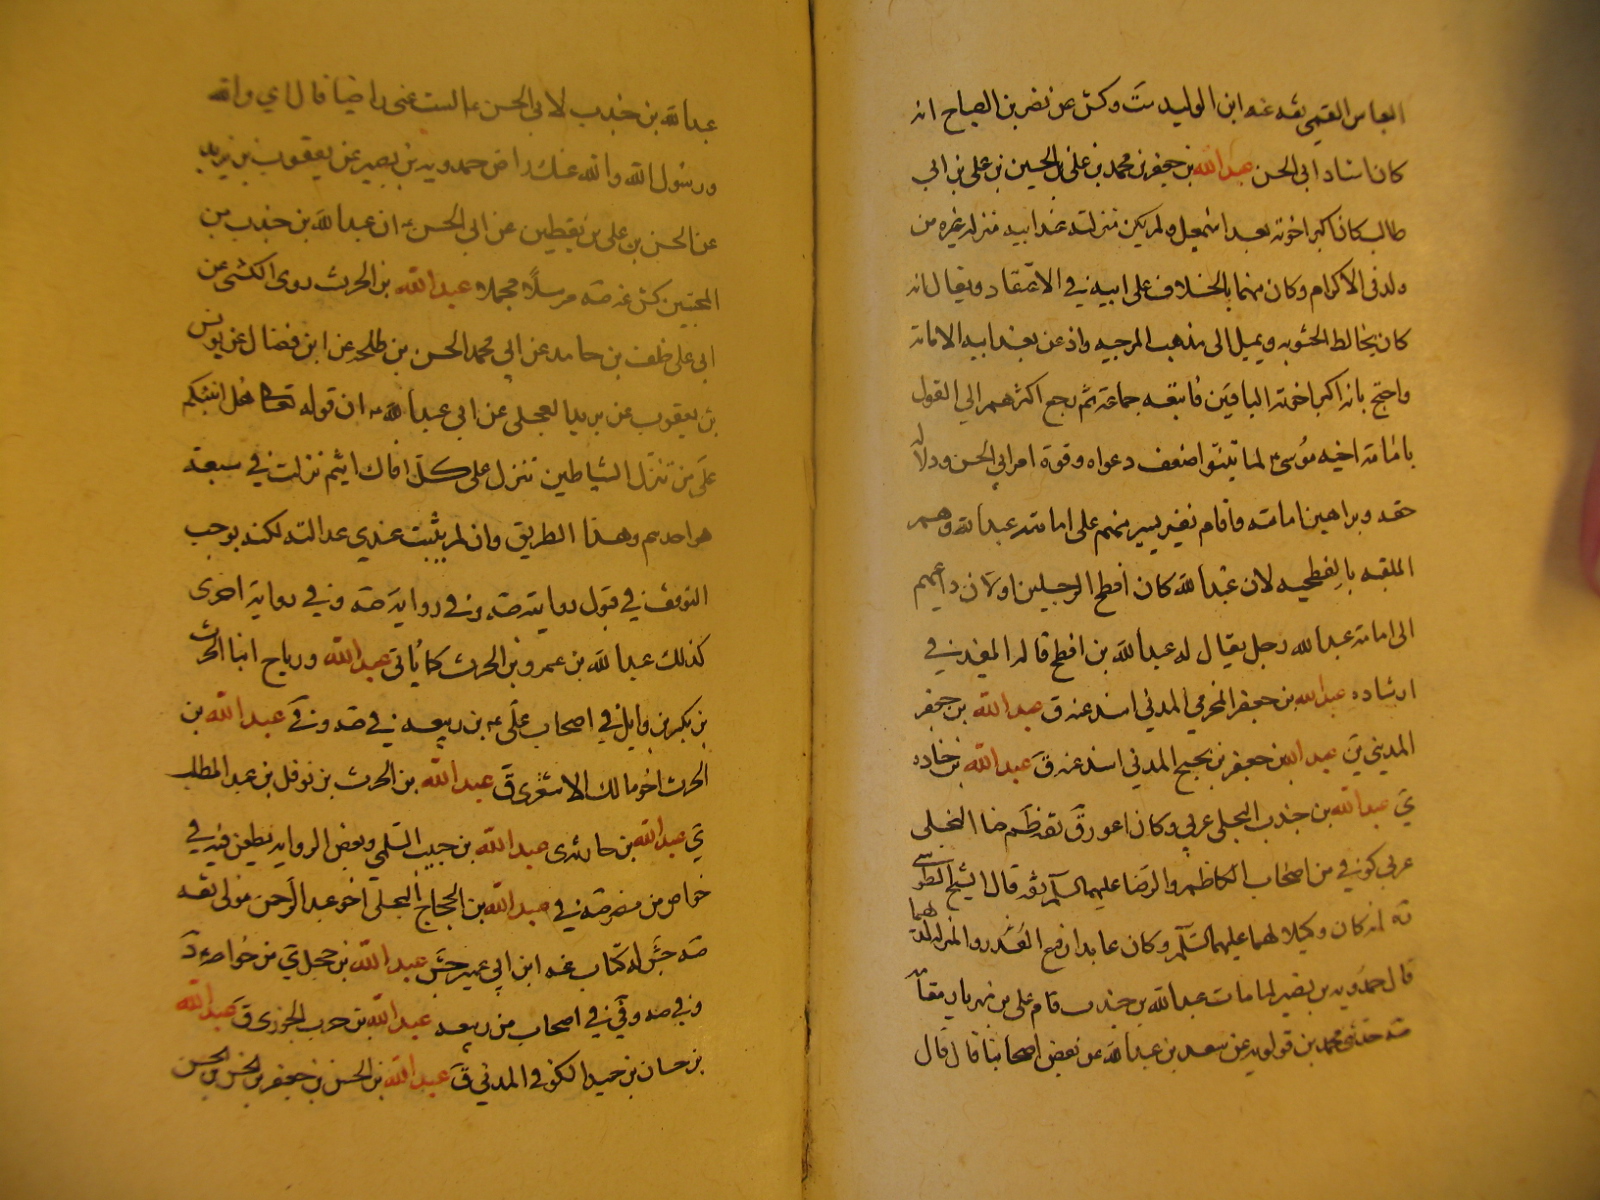 العباس القمى ثقه عنه ابن الوليد ست وكش عن نصر بن الصباح انه
كان استاد ابى الحسن عبد الله بن جعفر بن محمد بن على بن الحسين بن على بن ابى
طالب كان اكبر اخوته بعد اسمعيل ولم يكن منزلته عند ابيه منزلة غيره من
ولده فى الاكرام وكان متهما بالخلاف على ابيه فى الاعتقاد ويقال انه
كان يخالط الحشويه ويميل الى مذهب المرجيه واذعن بعد ابيه الامامة
واحتج بانه اكبر اخوته الباقين فاتبعه جماعة ثم رجع اكثرهم الى القول
بامامة اخيه موسى لما تبينوا ضعف دعواه وقوة امر ابى الحسن ودلالة
حقه وبراهين امامته واقام نفر يسير منهم على امامة عبد الله وهم
الملقبه بالفطحيه لان عبد الله كان افطح الرجلين او لان داعيهم
الى امامة عبد الله رجل يقال له عبد الله بن افطح قاله المفيد فى
ارشاده عبد الله بن جعفر المخرمى المدنى اسند عنه ق عبد الله بن جعفر
المدينى ين عبد الله بن جعفر بن نجيح المدنى اسند عنه ق عبد الله بن جناده
ى عبد الله بن جندب البجلى عربى وكان اعور ق ثقه ظم ضا البجلى
عربى كوفى من اصحاب الكاظم والرضا عليهما السلم ثقه قال الشيخ الطوسى
ره انه كان وكيلا لهما عليهما السلم وكان عابدا رفيع القدر والمنزلة لديهما
قال حمدويه بن نصير لما مات عبد الله بن جندب قام على بن مهزيار مقامه
صه حدثنى محمد بن قولويه عن سعد بن عبد الله عن بعض اصحابنا قال قال
عبد الله بن جندب لابى الحسن ع الست عنى راضيا قال اى والله
ورسول الله والله عنك راض حمدويه بن نصير عن يعقوب بن يزيد
عن الحسن بن على بن يقطين عن ابى الحسن ع ان عبد الله بن جندب من
المخبتين كش عنه صه مرسلا مجملا عبد الله بن الحرث روى الكشى عن
ابى على خلف بن حامد عن ابى محمد الحسن بن طلحه عن ابن فضال عن يونس
بن يعقوب عن بريد العجلى عن ابى عبد الله ع ان قوله تعالى هل انبئكم
على من تنزل الشياطين تنزل على كل افاك اثيم نزلت فى سبعة
هو احدهم وهذا الطريق وان لم يثبت عندى عدالته لكنه يوجب
التوقف فى قبول روايته صه وفى رواية صه وفى رواية اخرى
كذلك عبد الله بن عمرو بن الحرث كما ياتى عبد الله ورباح ابنا الحرث
بن بكر بن وايل فى اصحاب على ع بن ربيعه فى صه وفى عبد الله بن
الحرث اخو مالك الاشترى ق عبد الله بن الحرث بن نوفل بن عبد المطلب
ى عبد الله بن حا ى عبد الله بن حبيب السلمى وبعض الرواية يطعن فيه فى
خواص من مضر صه فى عبد الله بن الحجاج البجلى اخو عبد الرحمن مولى ثقه
صه جش له كتاب عنه ابن ابى عمير جش عبد الله بن حجل ى من خواصه د
وفى صه وقى فى اصحاب من ربيعه عبد الله بن حرب الجوزى ق عبد الله
بن حسان بن حميد الكوفى المدنى ق عبد الله بن الحسن بن جعفر بن الحسن بن الحسن